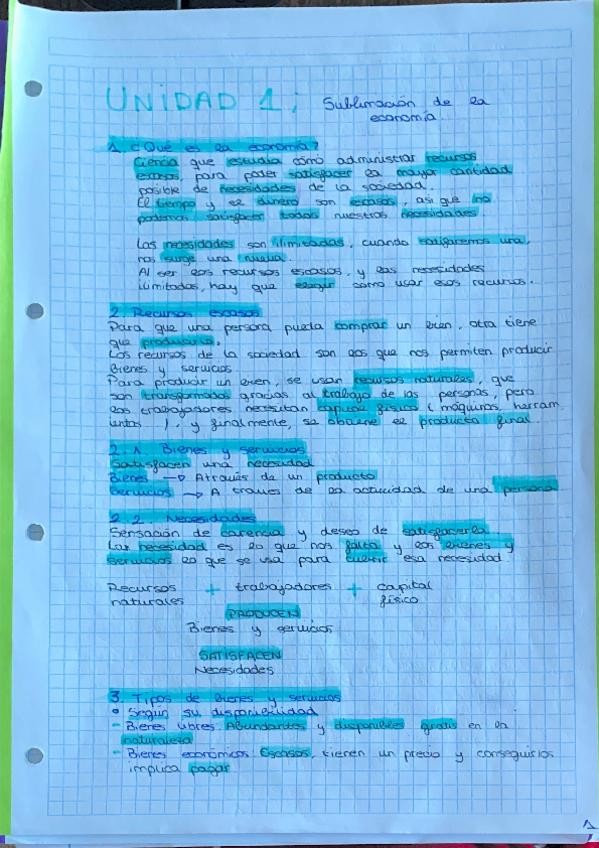 UNIDAD 1: Sublimación de la
economía.
1. ¿Qué es la economía?
Ciencia que estudia cómo administrar recursos
escasos, para poder satisfacer la mayor cantidad
posible de necesidades de la sociedad.
El tiempo y el dinero son escasos, así que no
podemos satisfacer todas nuestras necesidades
Las necesidades son ilimitadas, cuando satisfacemos una,
nos surge una nueva.
Al ser los recursos escasos, y las necesidades
ilimitadas, hay que elegir como usar esos recursos.
2. Recursos escasos
Para que una persona pueda comprar un bien, otra tiene
que producirlo.
Los recursos de la sociedad son los que nos permiten producir
bienes y servicios
Para producir un bien, se usan recursos naturales, que
son transformados gracias al trabajo de las personas, pero
los trabajadores necesitan capital físico (máquinas, herram
ientas...), y finalmente, se obtiene el producto final.
2.1. Bienes y servicios
Satisfacen una necesidad
Bienes → A través de un producto
Servicios → A traves de la actividad de una persona
2.2. Necesidades
Sensación de carencia y deseo de satisfacerla
Las necesidad es lo que nos falta y los bienes y
servicios lo que se usa para cubrir esa necesidad
Recursos + trabajadores + capital
naturales físico
PRODUCEN
Bienes y servicios
SATISFACEN
Necesidades
3. Tipos de bienes y servicios
• Según su disponibilidad
- Bienes libres: Abundantes y disponibles gratis en la
naturaleza
- Bienes económicos: Escasos, tienen un precio y conseguirlos
implica pagar